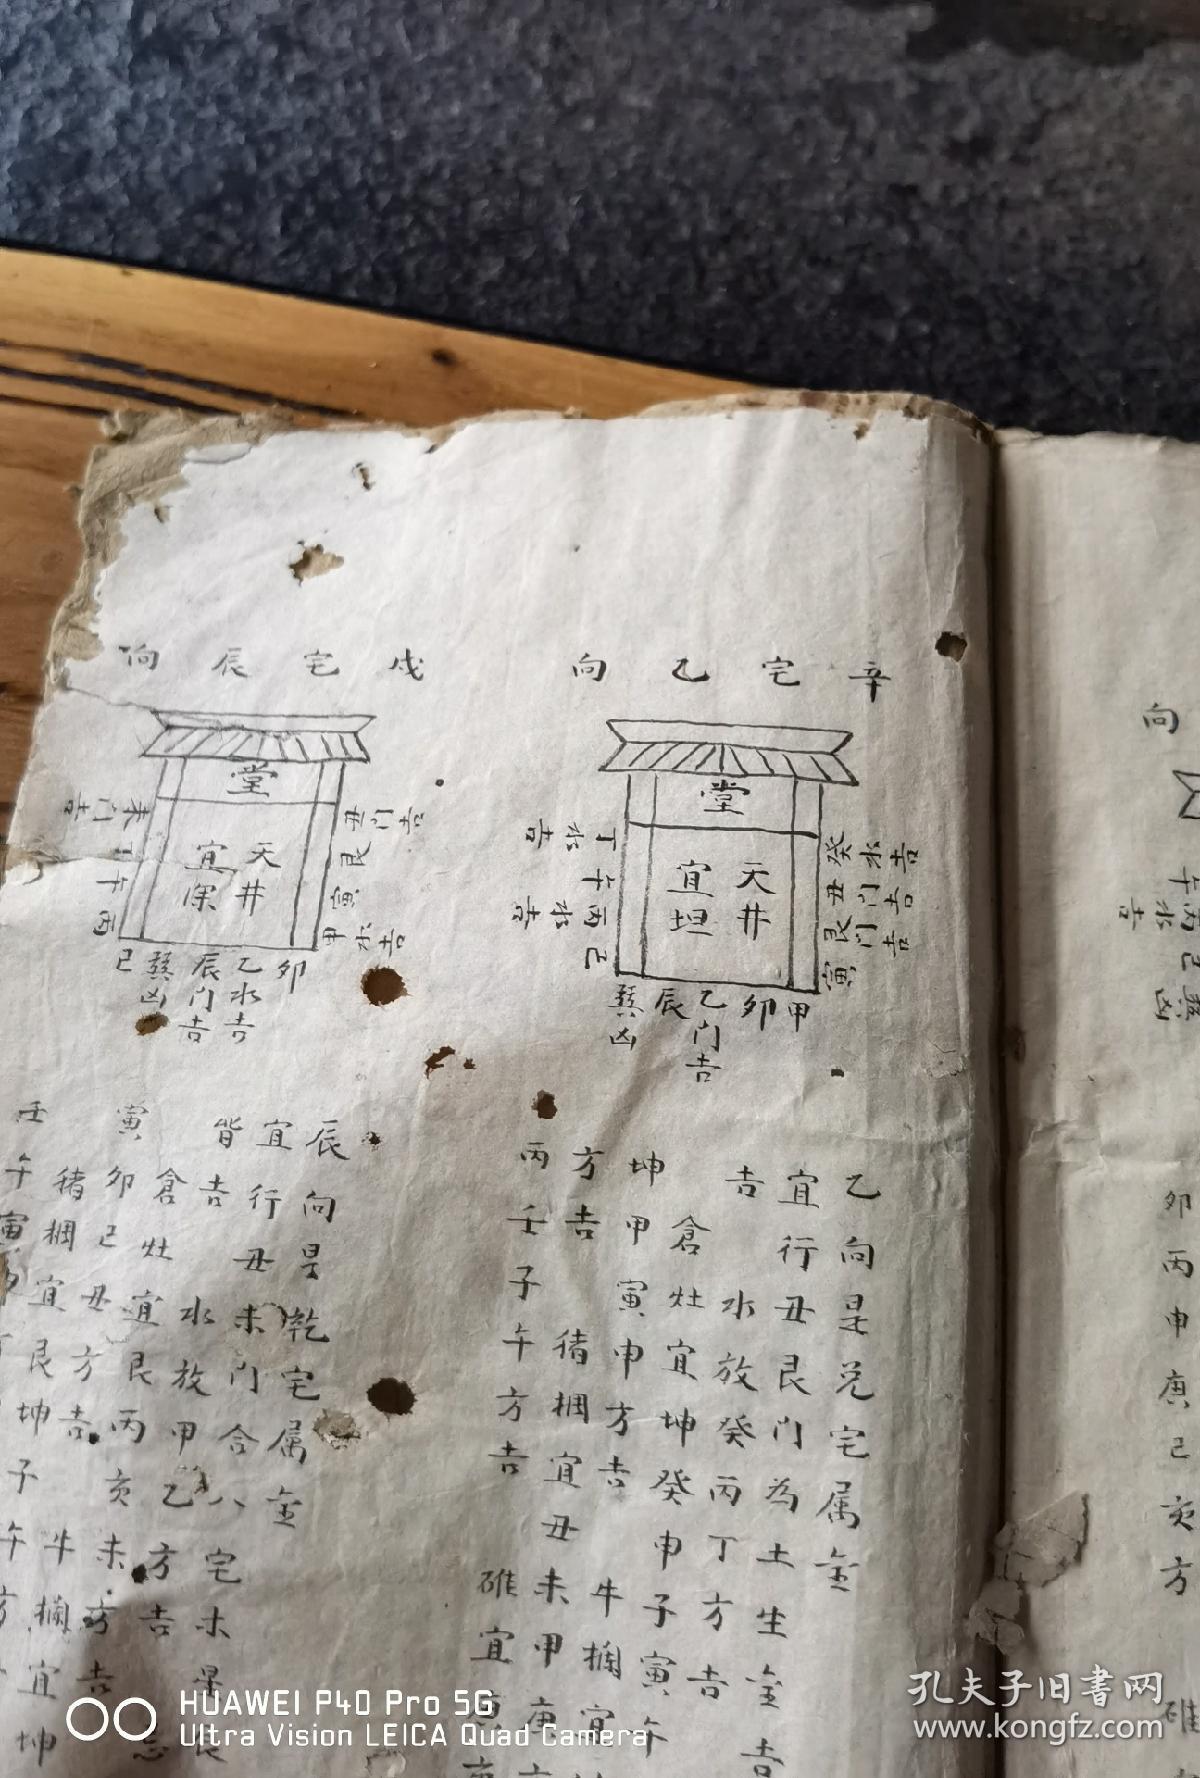 辛宅乙向
堂
天井
宜坦
癸水吉
丑门吉
艮门吉
寅
甲
卯
乙门吉
辰
巽凶
巳
丙水吉
午
丁水吉
乙向是兑宅属金
宜行丑艮门为土生金吉
吉 水放癸丙丁方吉
倉灶宜坤癸申子寅午
坤甲寅申方吉 牛摑宜
方吉 猪摑宜丑未甲庚方
丙壬子午方吉 碓宜庚亥
戌宅辰向
堂
天井
宜深
丑门吉
艮
寅
甲水吉
卯
乙水吉
辰门吉
巽凶
巳
丙
午
丁
未门吉
辰向是乾宅属金
宜行丑未门合八宅未是艮
皆吉 水放甲乙方吉 忌
倉灶宜艮丙亥未方吉
寅卯巳丑方吉 牛摑宜坤
猪摑宜艮坤子午方
壬午寅
向
午
丙水吉
巳
巽凶
卯丙申庚己亥方 碓
孔夫子旧书网
www.kongfz.com
HUAWEI P40 Pro 5G
Ultra Vision LEICA Quad Camera